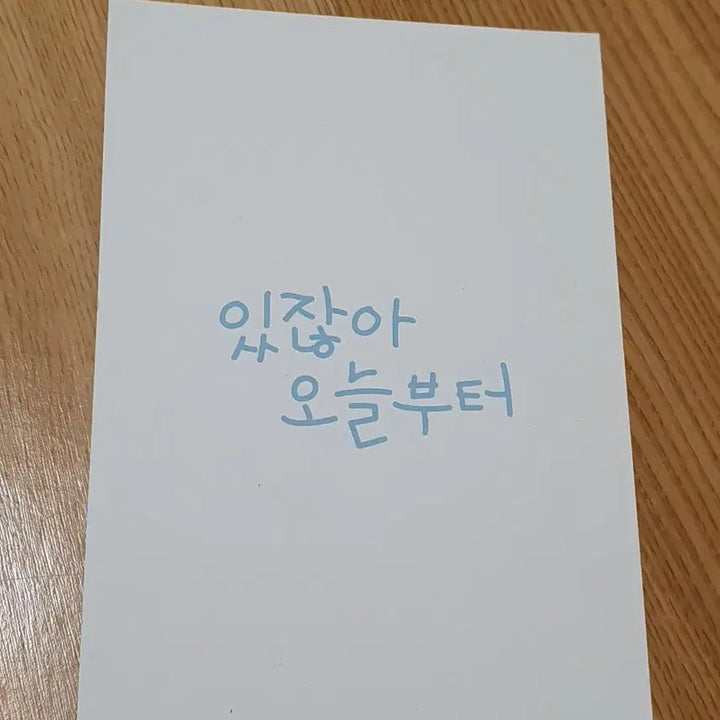 있잖아
오늘부터